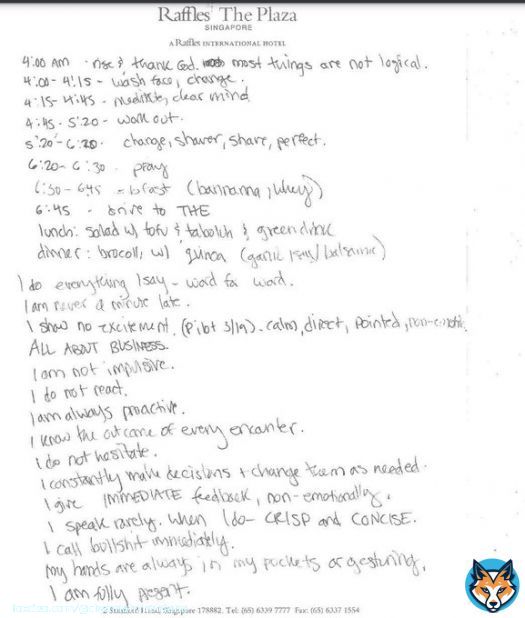 Raffles The Plaza
SINGAPORE
A Raffles INTERNATIONAL HOTEL
4:00 AM · rise & thank God. most things are not logical.
4:00 - 4:15 - wash face, change.
4:15 - 4:45 - meditate, clear mind
4:45 - 5:20 - work out.
5:20 - 6:20 · change, shower, shave, perfect.
6:20 - 6:30 · pray
6:30 - 6:45 - bfast (bannanna, whey)
6:45 - drive to THE
lunch: salad w/ tofu & tabolch & green drink
dinner: brocoli, w/ quinoa (garlic /say/balsamic)
I do everything I say - word for word.
I am never a minute late.
I show no excitement. - calm, direct, pointed, non-emotic
ALL ABOUT BUSINESS.
I am not impulsive.
I do not react.
I am always proactive.
I know the outcome of every encounter.
I do not hesitate.
I constantly make decisions + change them as needed.
I give IMMEDIATE feedback, non-emotionally.
I speak rarely. When I do - CRISP and CONCISE.
I call bullshit immediately.
My hands are always in my pockets or gesturing.
I am fully present.
2 Stamford Road, Singapore 178882. Tel: (65) 6339 7777 Fax: (65) 6337 1554